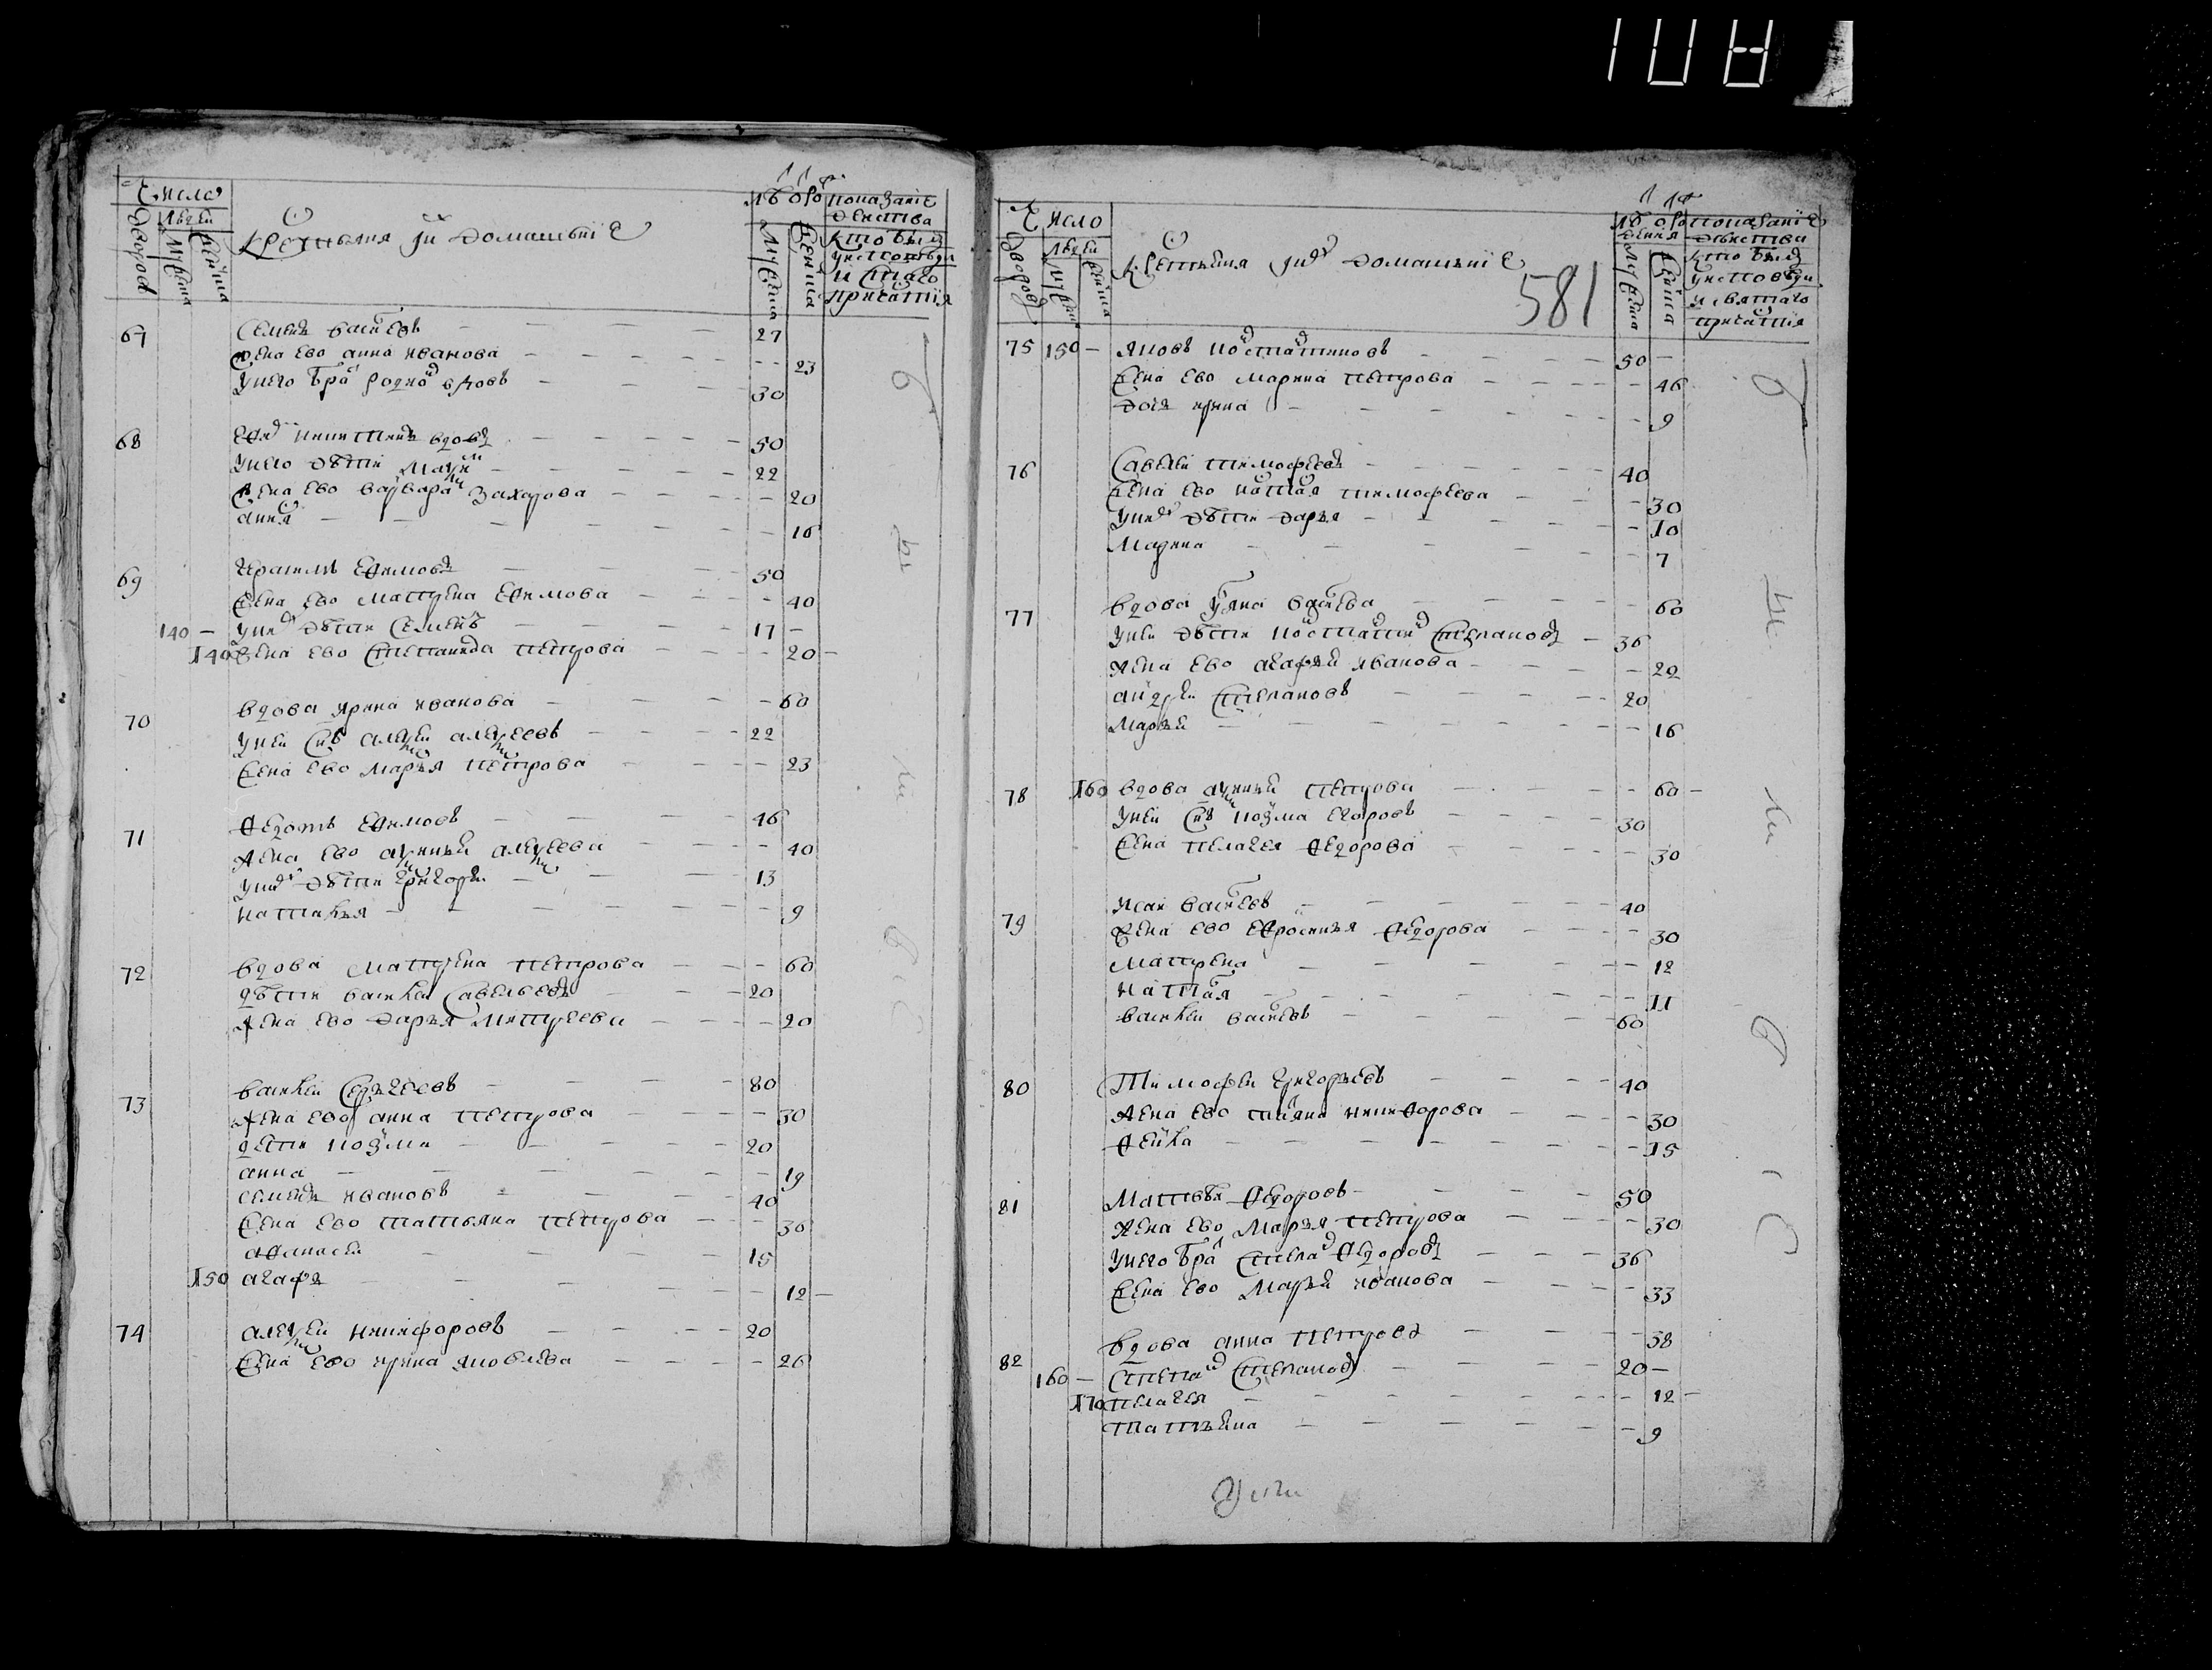 108
Число
Дворов
Людей
Мужеска
Женска
Крестьяня и домашние
Мужеска
Женска
показание
действа
кто был
у исповеди
и стаго
причастия
67 Семен Васильев 27
жена ево Анна Иванова 23
у него брат родной вдов 30
68 Никитин вдов 50
у него дети Максим 22
жена ево Варвара Захарова 20
Анна 16
69 Герасим Ефимов 50
жена ево Матрена Ефимова 40
140 у них дети Семен 17
140 жена ево Степанида Петрова 20
70 вдова Ирина Иванова 60
у ней сын Алексей Алексеев 22
жена ево Марья Петрова 23
71 Федот Ефимов 46
жена ево Аксинья Алексеева 40
у них дети Григорей 13
Наталья 9
72 вдова Матрена Петрова 60
дети Василей Савельев 20
жена ево Дарья Матвеева 20
73 Василей Сергеев 80
жена ево Анна Петрова 30
дети Козма 20
Анна 19
Семен Иванов 40
жена ево Татьяна Петрова 30
Афанасей 15
150 Агафья 12
74 Алексей Никифоров 20
жена ево Ирина Яковлева 26
Число
Дворов
Людей
Мужеска
Женска
Крестьяня и их домашние
581
Мужеска
Женска
показание
действа
кто был
у исповеди
и святаго
причастия
75 150 Яков Костантинов 50
жена ево Марина Петрова 46
дочь Ирина 9
76 Савелей Тимофеев 40
жена ево Настасья Тимофеева 30
у них дети Дарья 10
Марина 7
77 вдова Ульяна Васильева 60
у ней дети Костантин Степанов 36
жена ево Агафья Иванова 29
Андрей Степанов 20
Марья 16
78 160 вдова Аксинья Петрова 60
у ней сын Козма Егоров 30
жена Пелагея Федорова 30
79 Исай Васильев 40
жена ево Ефросинья Федорова 30
Матрена 12
11
Василей Васильев 60
80 Тимофей Григорьев 40
жена ево Татьяна Никифорова 30
Фекла 15
81 Матвей Федоров 50
жена ево Марья Петрова 30
у него брат Степан Федоров 36
жена ево Марья Иванова 33
82 вдова Анна Петрова 58
160 Степан Степанов 20
170 Пелагея 12
Татьяна 9